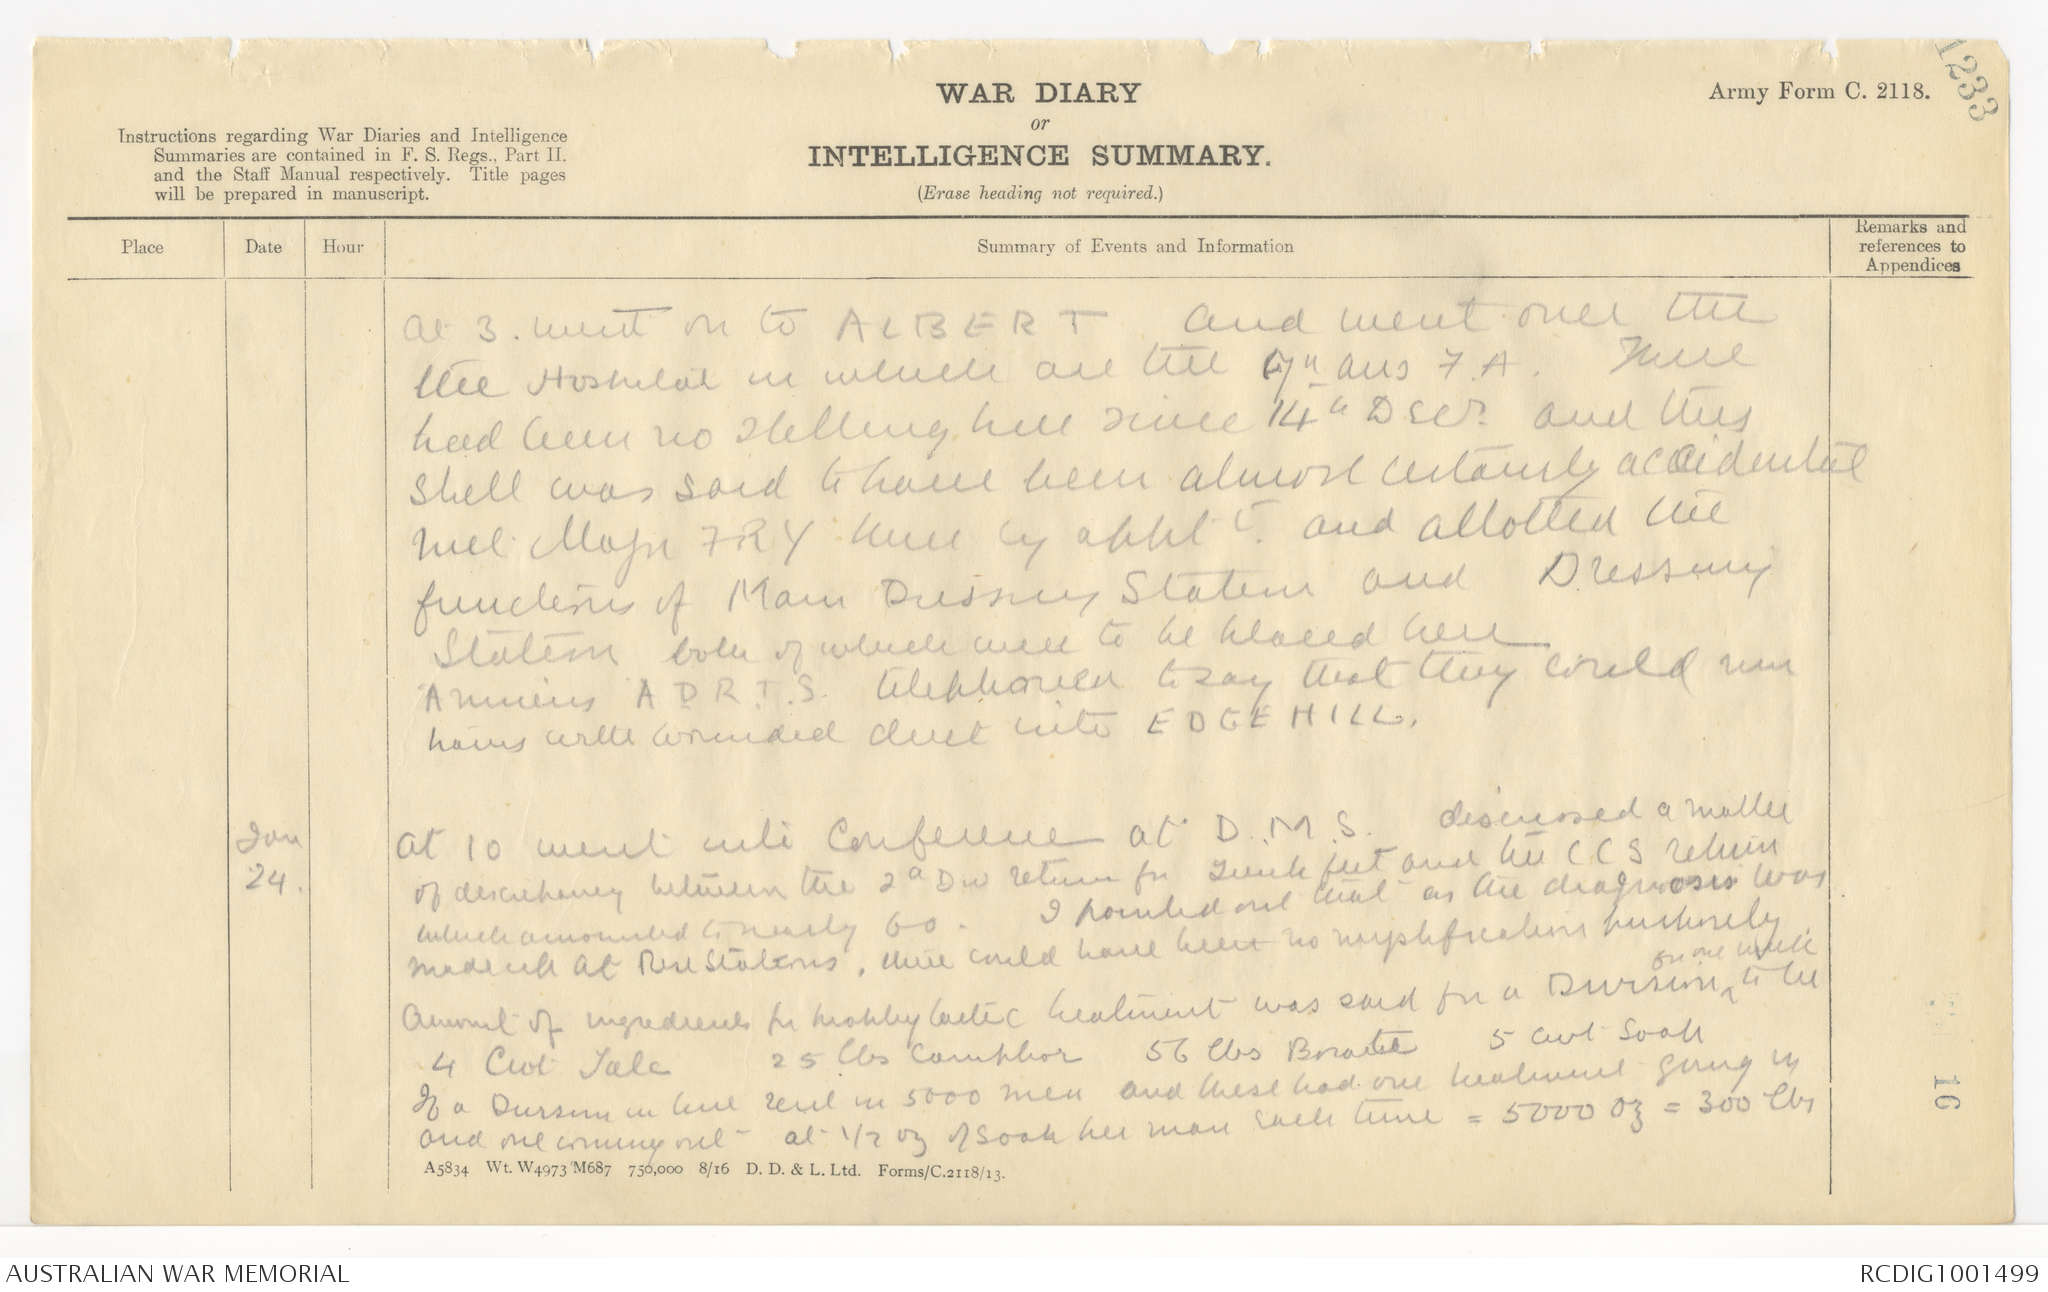 1233
WAR DIARY
or
INTELLIGENCE SUMMARY.
(Erase heading not required.)
Army Form C. 2118.
Instructions regarding War Diaries and Intelligence
Summaries are contained in F. S. Regs., Part II.
and the Staff Manual respectively. Title pages
will be prepared in manuscript.
Place
Date
Hour
Summary of Events and Information
Remarks and
references to
Appendices
At 3. went on to ALBERT and went over the
the Hospital in which are the Aus F.A. There
had been no shelling here since 14th Decr. and this
shell was said to have been almost certainly accidental
met Major FRY here by appt. and allotted the
functions of Main Dressing Station and Dressing
Station both of which were to be placed here
Amiens A D R.T.S. telephoned to say that they could run
trains with wounded direct into EDGEHILL.
Jan
24.
At 10 went into Conference at D.M.S. discussed a matter
of discrepancy between the 2d Div return for Trench feet and the CCS return
which amounted to nearly 60. I pointed out that as the diagnosis was
made up at Rest Stations, there could have been no purposely
Amount of ingredients for prophylactic treatment was said for a Division for one week to be
4 Cwt Talc 25 lbs Camphor 56 lbs Borate 5 cwt Soap
If a Division in line sent in 5000 men and these had one treatment going in
and one coming out at 1/2 oz of Soap per man each time = 5000 oz = 300 lbs
16
A5834 Wt. W4973/M687 750,000 8/16 D. D. & L. Ltd. Forms/C.2118/13.
AUSTRALIAN WAR MEMORIAL
RCDIG1001499